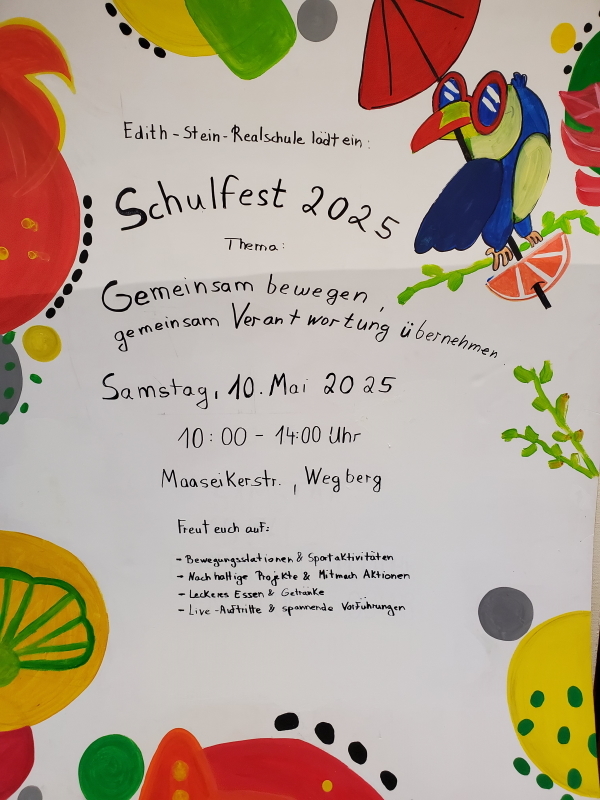 Edith-Stein-Realschule lädt ein:
Schulfest 2025
Thema:
Gemeinsam bewegen,
gemeinsam Verantwortung übernehmen
Samstag, 10. Mai 2025
10:00 - 14:00 Uhr
Maaseikerstr., Wegberg
Freut euch auf:
- Bewegungsstationen & Sportaktivitäten
- Nachhaltige Projekte & Mitmach Aktionen
- Leckeres Essen & Getränke
- Live-Auftritte & spannende Vorführungen